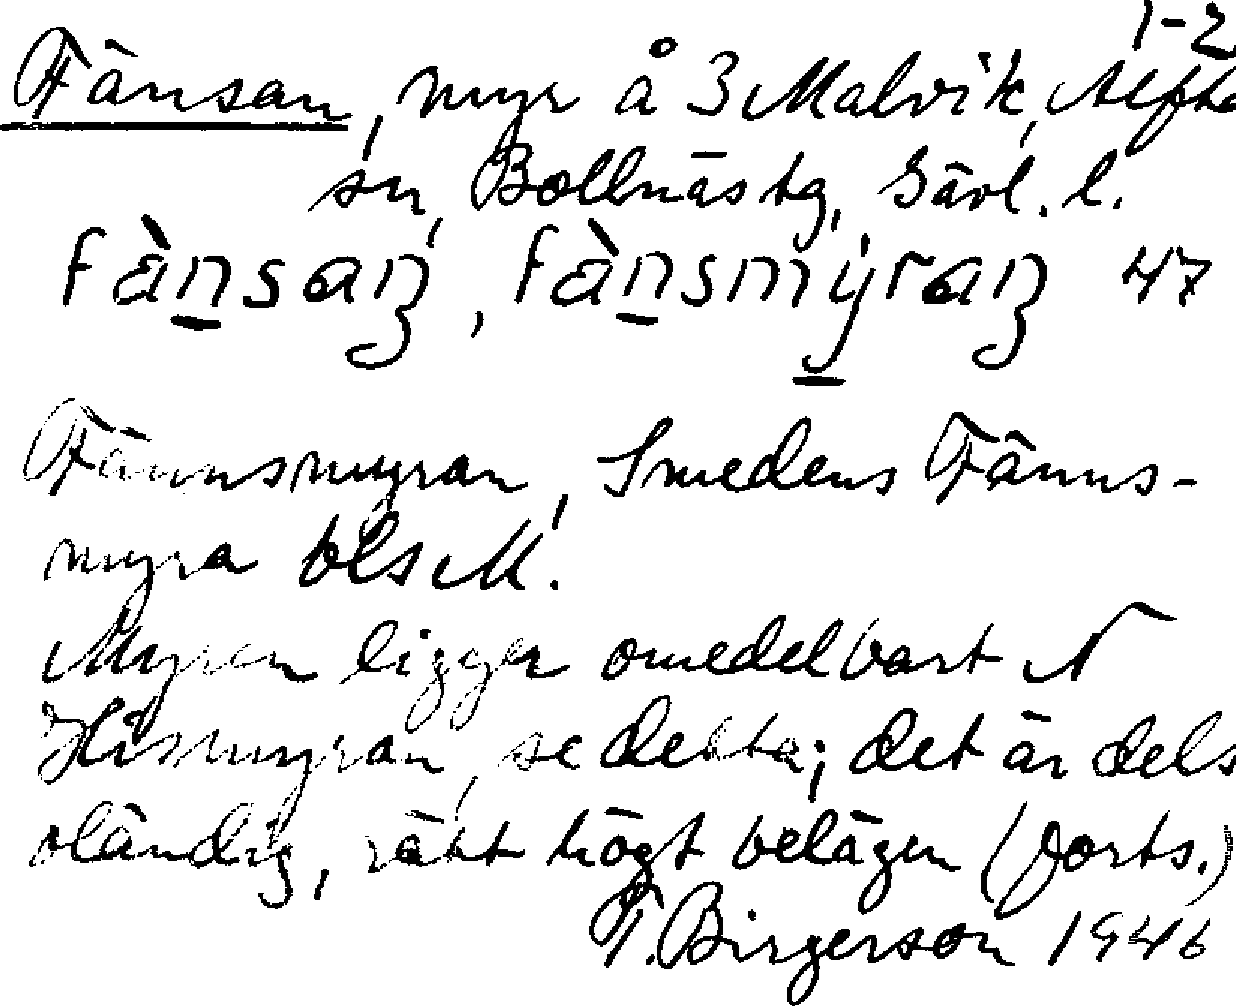 1-2
Fänsan, myr å 3 Malvik, Alfta
sn, Bollnäs tg, Gävl. l.
fànsaŋ, fànsmýraŋ 47
Fännsmyran, Smedens Fänns-
myra bls M.
Myren ligger omedelbart N
Hismyran, se detta; det är dels
oländig, rätt högt belägen (forts.)
T. Birgerson 1946